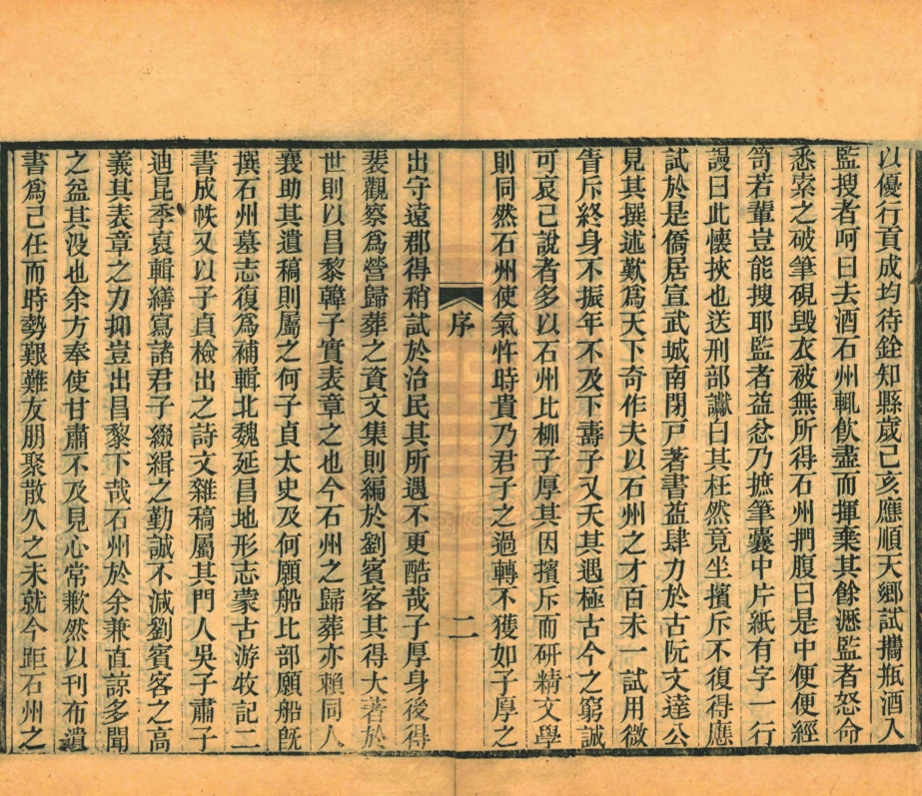 以優行貢成均待銓知縣歲己亥應順天鄉試攜瓶酒入
監搜者呵曰去酒石州輒飲盡而揮棄其餘瀝監者怒命
悉索之破筆硯毀衣被無所得石州捫腹曰是中便便經
笥若輩豈能搜耶監者益忿乃摭筆囊中片紙有字一行
謾曰此懷挾也送刑部讞白其枉然竟坐擯斥不復得應
試於是僑居宣武城南閉戸著書益肆力於古阮文達公
見其撰述歎爲天下奇作夫以石州之才百未一試用微
眚斥終身不振年不及下壽子又夭其遇極古今之窮誠
可哀已說者多以石州比柳子厚其因擯斥而硏精文學
則同然石州使氣忤時貴乃君子之過轉不獲如子厚之
序 二
出守遠郡得稍試於治民其所遇不更酷哉子厚身後得
裴觀察爲營歸葬之資文集則編於劉賓客其得大著於
世則以昌黎韓子實表章之也今石州之歸葬亦賴同人
襄助其遺稿則屬之何子貞太史及何願船比部願船旣
撰石州墓志復爲補輯北魏延昌地形志蒙古游牧記二
書成帙又以子貞檢出之詩文雜稿屬其門人吳子肅子
迪昆季裒輯繕寫諸君子綴緝之勤誠不減劉賓客之高
義其表章之力抑豈出昌黎下哉石州於余兼直諒多聞
之益其沒也余方奉使甘肅不及見心常歉然以刊布遺
書爲己任而時勢艱難友朋聚散久之未就今距石州之